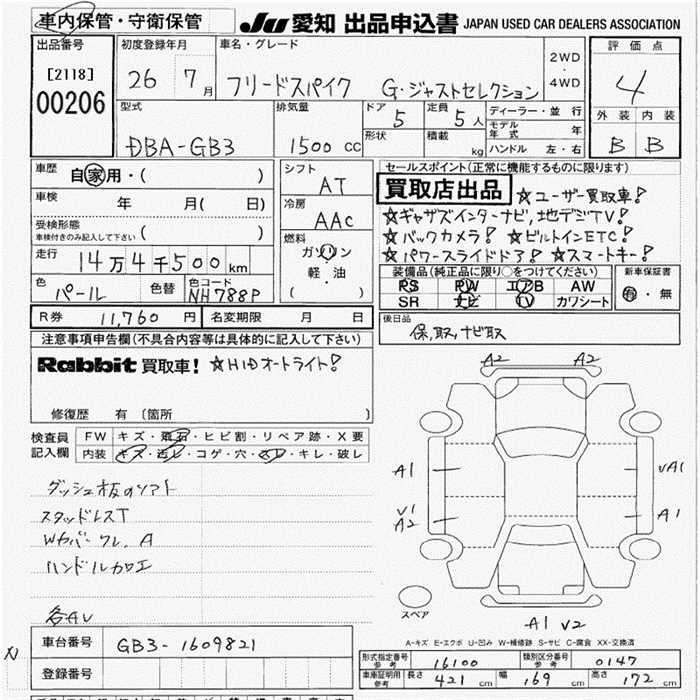 車内保管・守衛保管
JU 愛知 出品申込書 JAPAN USED CAR DEALERS ASSOCIATION
出品番号 初度登録年月 車名・グレード 2WD・4WD 評価点
[2118] 00206 26 7月 フリードスパイク G・ジャストセレクション 4
型式 排気量 ドア 5 定員 5人 ディーラー・並行 外装 内装
形状 積載 kg モデル年式 年
DBA-GB3 1500cc ハンドル 左・右 B B
車歴 自家用・( ) シフト AT セールスポイント(正常に機能するものに限ります)
車検 年 月( 日) 冷房 AAC 買取店出品 ☆ユーザー買取車!
受検形態 車検付きのみ記入して下さい ( ) ☆ギャザズインターナビ,地デジTV!
☆バックカメラ! ☆ビルトインETC!
走行 14万4千500km 燃料 ガソリン ☆パワースライドドア! ☆スマートキー!
軽・油 ( ) 装備品(純正品に限り○をつけてください) 新車保証書
色 パール 色替 色コード NH788P PS PW エアB AW 有・無
SR ナビ TV カワシート
R券 11,760円 名変期限 月 日 後日品
保,取,ナビ取
注意事項申告欄(不具合内容等は具体的に記入して下さい)
Rabbit 買取車! ☆HIDオートライト!
修復歴 有 〔箇所 〕
検査員記入欄 FW キズ・飛石・ヒビ割・リペア跡・X要
内装 キズ・汚レ・コゲ・穴・スレ・キレ・破レ
ダッシュ板のソフト
スタッドレスT
Wカバーワレ、A
ハンドル加工
各AU
A2 A2
A1 VA1
V1
A2 A1
A1 V2
スペア
A-キズ E-エクボ U-凹み W-補修跡 S-サビ C-腐食 XX-交換済
車台番号 GB3-1609821
登録番号
形式指定番号 参考 16100 類別区分番号 参考 0147
車庫証明用 参考 長さ 421cm 幅 169cm 高さ 172cm